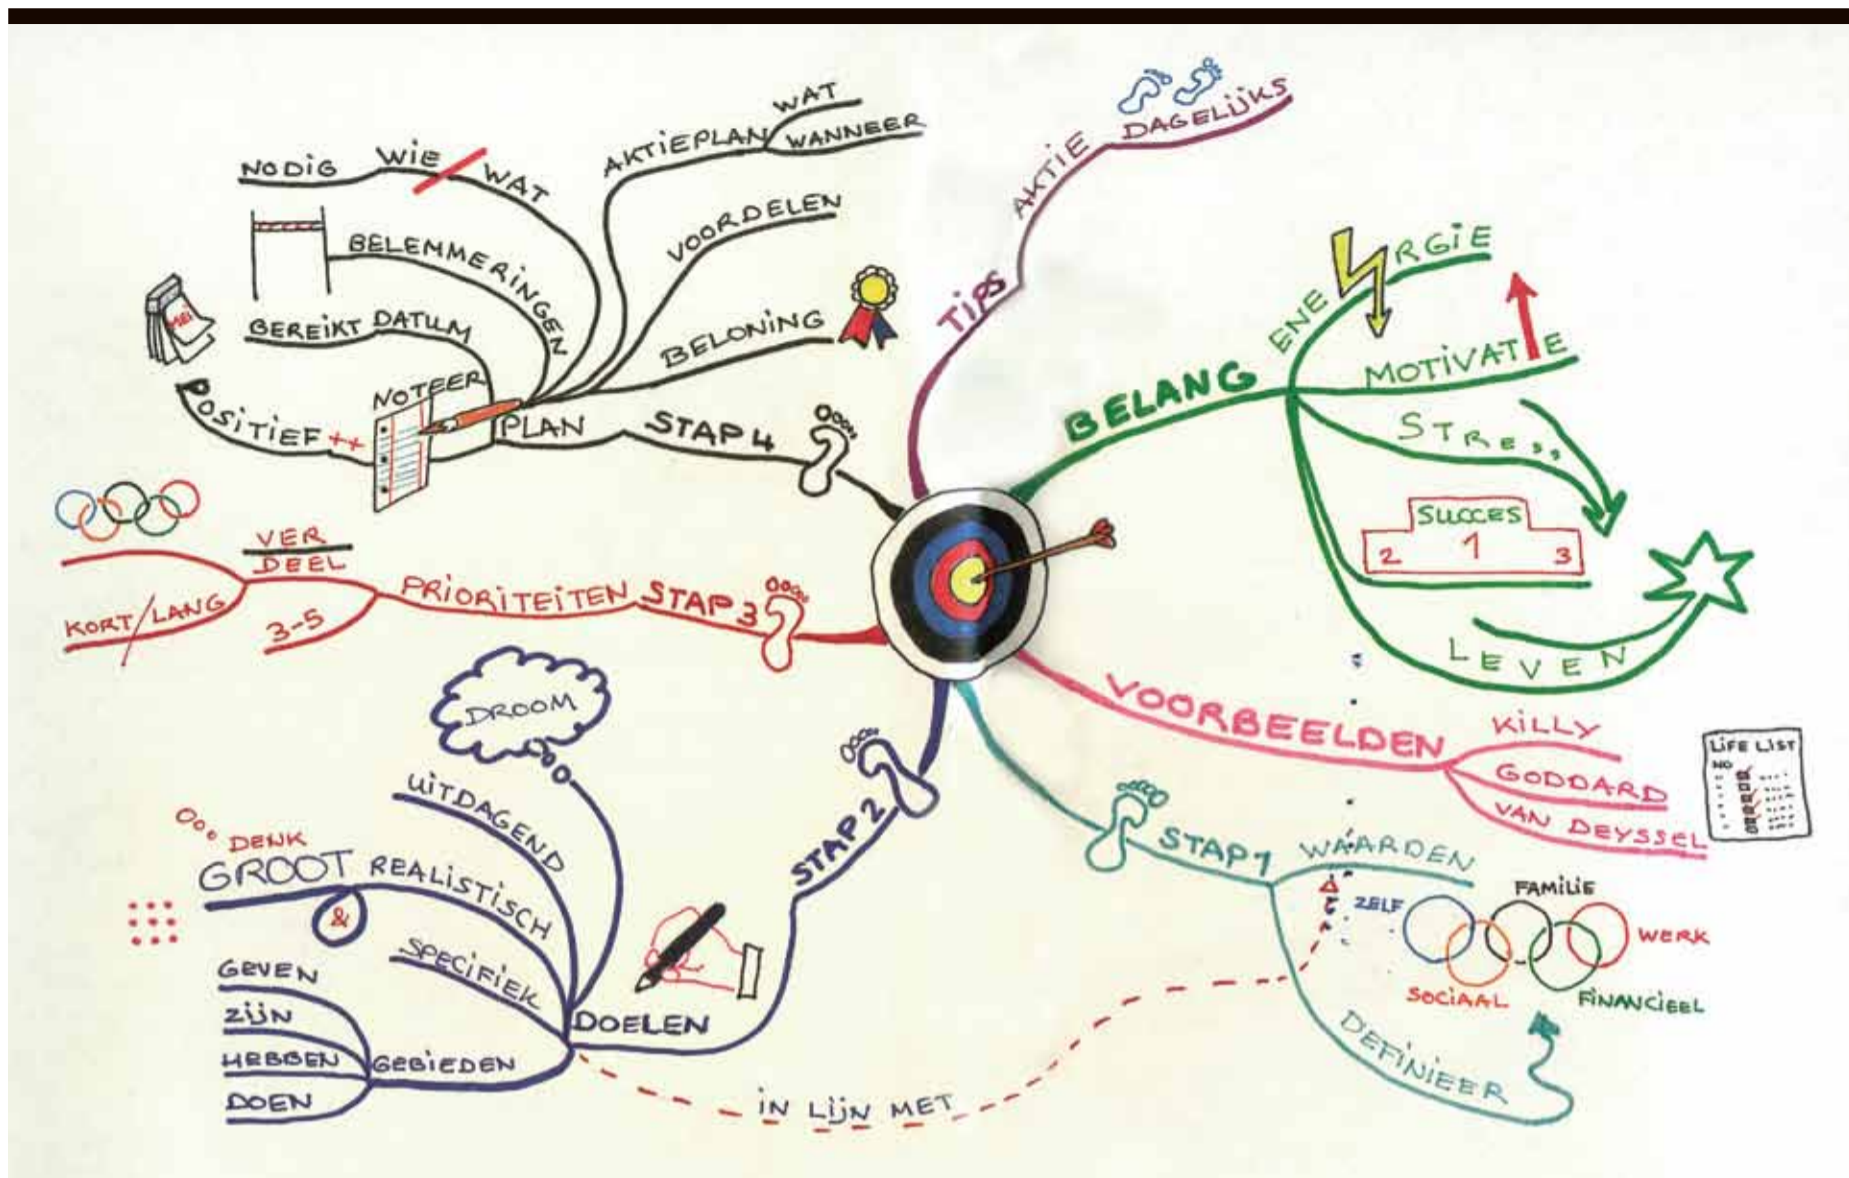 TIPS
AKTIE
DAGELIJKS
BELANG
ENE RGIE
MOTIVATIE
STRESS
SUCCES
2 1 3
LEVEN
VOORBEELDEN
KILLY
GODDARD
VAN DEYSSEL
LIFE LIST
NO
STAP 1
WAARDEN
ZELF
FAMILIE
WERK
SOCIAAL
FINANCIEEL
DEFINIEER
IN LIJN MET
STAP 2
DOELEN
DROOM
UITDAGEND
REALISTISCH
&
DENK
GROOT
SPECIFIEK
GEBIEDEN
GEVEN
ZIJN
HEBBEN
DOEN
STAP 3
PRIORITEITEN
VER
DEEL
3-5
KORT/LANG
STAP 4
PLAN
NOTEER
POSITIEF ++
MEI
BEREIKT DATUM
BELEMMERINGEN
NODIG WIE / WAT
AKTIEPLAN
WAT
WANNEER
VOORDELEN
BELONING